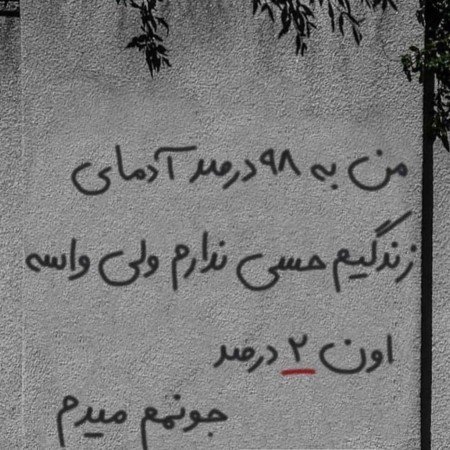 من به ۹۸ درصد آدمای
زندگیم حسی ندارم ولی واسه
اون ۲ درصد
جونمم میدم